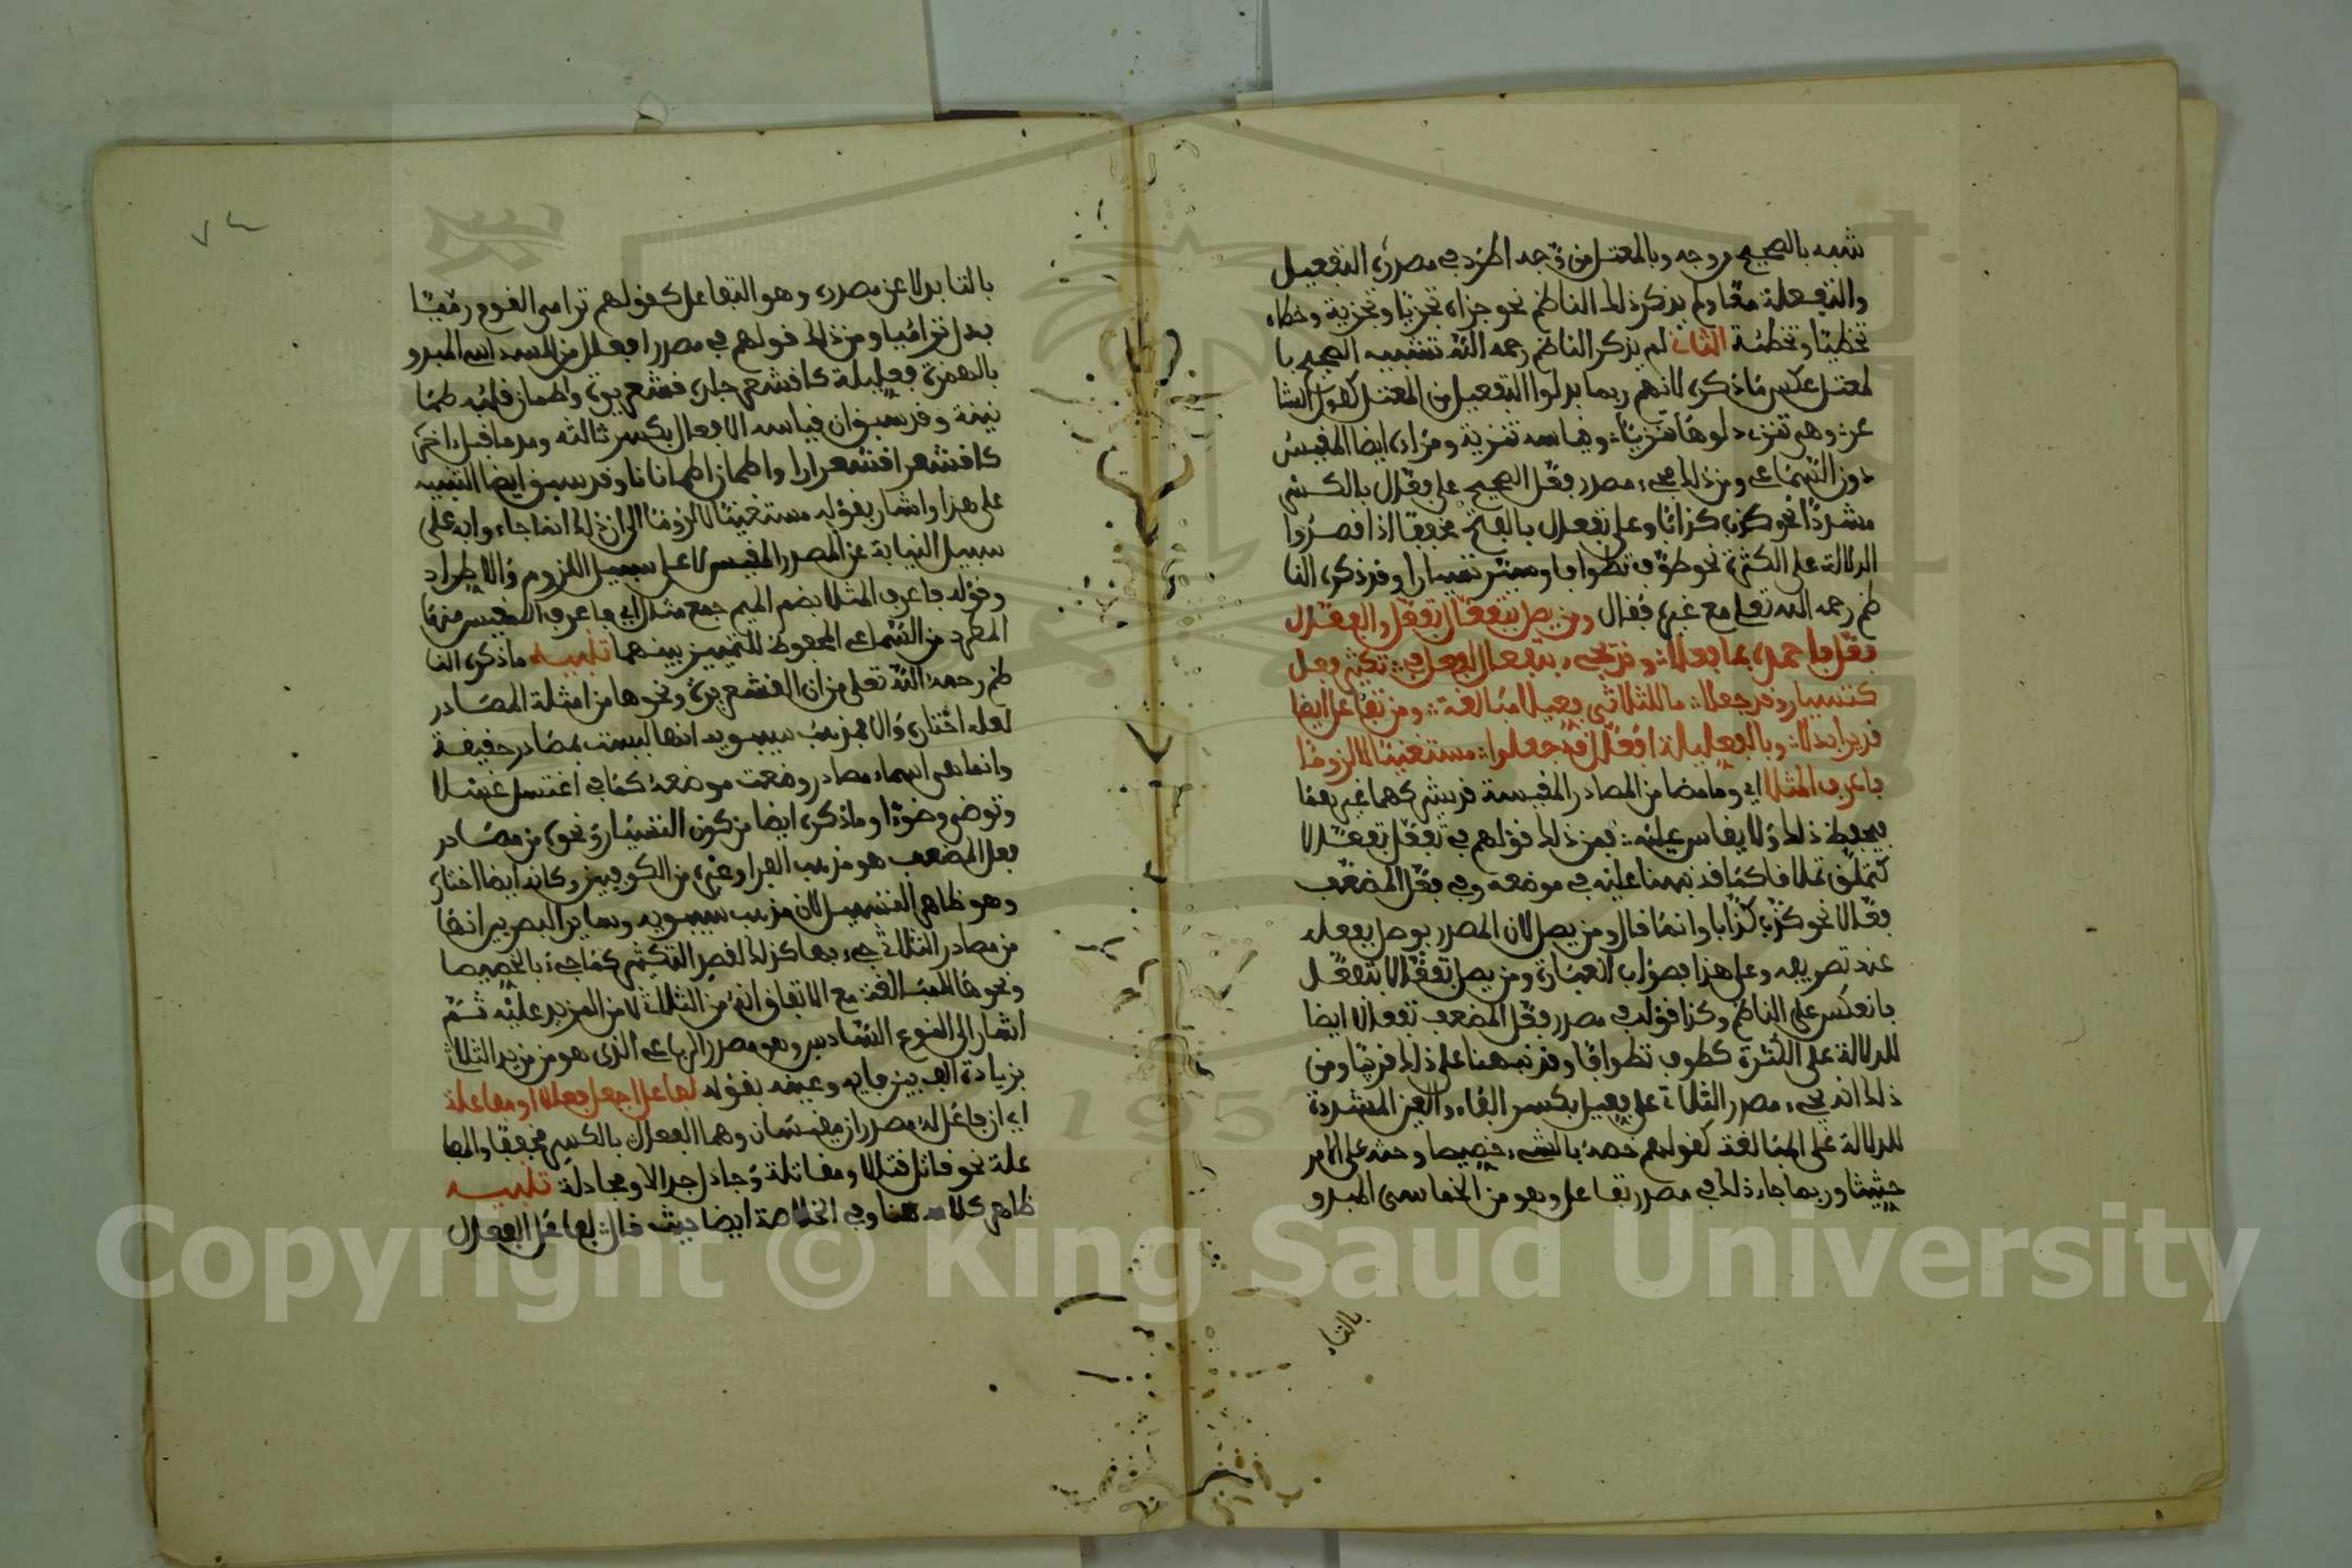 شبه بالصحيح من وجه وبالمعتل من وجه اطرد في مصدره التفعيل
والتفعلة معا ولم يذكر ذلك الناظم نحو جزاه تجزيا وتجزية وخطاه
تخطيئا وتخطئة الثاني لم يذكر الناظم رحمه الله تشبيه الصحيح با
لمعتل عكس ما ذكره لانهم ربما بدلوا التفعيل من المعتل كقول الشا
عر وهي تنزي دلوها تنزيا وقياسه تنزية ومراده ايضا المقيس
دون السماعي ومن ذلك مجيء مصدر فعل الصحيح على فعال بالكسر
مشددا نحو كذب كذابا وعلى تفعال بالفتح مخففا اذا قصدوا
الدلالة على الكثرة نحو طوف تطوافا وسير تسيارا وقد ذكره النا
ظم رحمه الله تعلى مع غيره فقال ومن يصل بتفعال تفعل والفعال
فعل فاحمده بما فعلا وقد يجيء بتفعال لفعل في تكثير فعل
كتسيار وقد جعلا ما للثلاثي فعيلا مبالغة ومن تفاعل ايضا
قد يرا بدلا وبالفعليلة افعلل قد جعلوا مستغنيا لا لزوما
فاعرف المثلا اي وما مضا من المصادر المقيسة قد يشركهما غيرهما
فيحفظ ذلك ولا يقاس عليه فمن ذلك قولهم في تفعل تفعالا
كتملق تملاقا كما قد نبهنا عليه في موضعه وفي فعل المضعف
فعالا نحو كذب كذابا وانما قال ومن يصل لان المصدر يوصل بفعله
عند تصريفه وعلى هذا فصواب العبارة ومن يصل تفعالا بتفعل
فانعكس على الناظم وكذا قولك في مصدر فعل المضعف تفعالا ايضا
للدلالة على الكثرة كطوف تطوافا وقد نبهنا على ذلك قريبا ومن
ذلك انه يجيء مصدر الثلاثي على فعيل بكسر الفاء والعين المشددة
للدلالة على المبالغة كقولهم خصه بالشيء خصيصا وحثه على الامر
حثيثا وربما جاء ذلك في مصدر تفاعل وهو من الخماسي المبدو
بالتاء
بالتا بدلا عن مصدره وهو التفاعل كقولهم ترامى القوم رميا
بدل تراميا ومن ذلك قولهم في مصدر افعلل من السداسي المبدو
بالهمزة فعليلة كاقشعر جلده قشعريرة واطمان قلبه طما
نينة وقد سبق ان قياسه الافعلال بكسر ثالثه ومد ما قبل اخره
كاقشعر اقشعرارا واطمان اطمانانا وقد سبق ايضا التنبيه
على هذا واشار بقوله مستغنيا لا لزوما الى ان ذلك انما جاءوا به على
سبيل النيابة عن المصدر المقيس لا على سبيل اللزوم والاطراد
وقوله فاعرف المثلا بضم الميم جمع مثال اي فاعرف المقيس منها
المطرد من السماعي المحفوظ للتمييز بينهما تنبيه ما ذكره النا
ظم رحمه الله تعلى من ان القشعريرة ونحوها من امثلة المصادر
لعله اختاره والا فمذهب سيبويه انها ليست بمصادر حقيقة
وانما هي اسماء مصادر وضعت موضعه كما في اغتسل غسلا
وتوضى وضوءا وما ذكره ايضا من كون التسيار ونحوه من مصادر
فعل المضعف هو مذهب الفرا وغيره من الكوفيين وكانه ايضا اختاره
وهو ظاهر التسهيل لان مذهب سيبويه وساير البصريين انها
من مصادر الثلاثي جيء بها كذلك لقصد التكثير كما جيء بالخصيصا
ونحوها للمبالغة مع الاتفاق انه من الثلاثي لا من المزيد عليه ثم
اشار الى النوع السادس وهو مصدر الرباعي الذي هو من مزيد الثلاثي
بزيادة الف بين فايه وعينه بقوله لفاعل اجعل فعالا او مفاعلة
اي ان فاعل له مصدران مقيسان وهما الفعال بالكسر مخففا والمفا
علة نحو قاتل قتالا ومقاتلة وجادل جدالا ومجادلة تنبيه
ظاهر كلامه هنا وفي الخلاصة ايضا حيث قال لفاعل الفعال
Copyright © King Saud University
1957